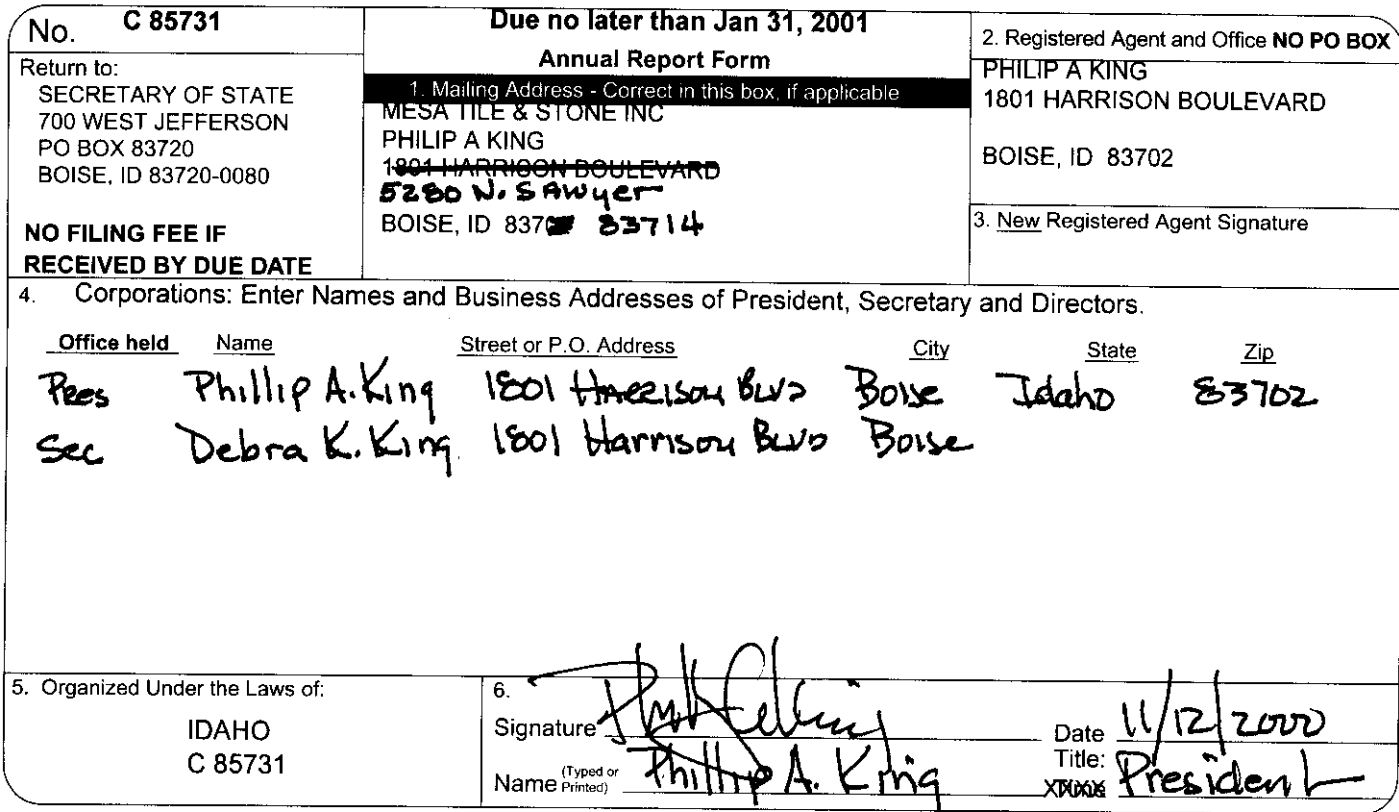 No. C 85731
Return to:
SECRETARY OF STATE
700 WEST JEFFERSON
PO BOX 83720
BOISE, ID 83720-0080
NO FILING FEE IF
RECEIVED BY DUE DATE
Due no later than Jan 31, 2001
Annual Report Form
1. Mailing Address - Correct in this box, if applicable
MESA TILE & STONE INC
PHILIP A KING
1801 HARRISON BOULEVARD
5280 N. SAWyer
BOISE, ID 83714
2. Registered Agent and Office NO PO BOX
PHILIP A KING
1801 HARRISON BOULEVARD
BOISE, ID 83702
3. New Registered Agent Signature
4. Corporations: Enter Names and Business Addresses of President, Secretary and Directors.
Office held Name Street or P.O. Address City State Zip
Pres Phillip A. King 1801 Harrison BLVD Boise Idaho 83702
Sec Debra K. King 1801 Harrison BLVD Boise
5. Organized Under the Laws of:
IDAHO
C 85731
6.
Signature Date 11/12/2000
Name (Typed or Printed) Phillip A. King Title: President